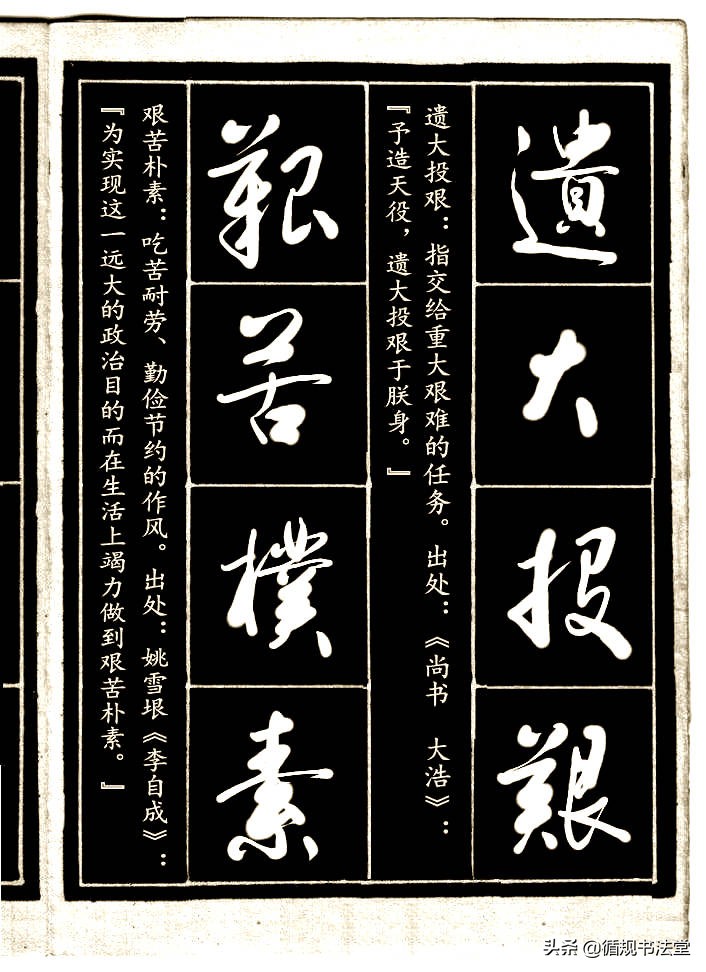 遺大投艱
遗大投艰：指交给重大艰难的任务。出处：《尚书 大浩》：
『予造天役，遗大投艰于朕身。』
艱苦樸素
艰苦朴素：吃苦耐劳、勤俭节约的作风。出处：姚雪垠《李自成》：
『为实现这一远大的政治目的而在生活上竭力做到艰苦朴素。』
头条 @循规书法堂